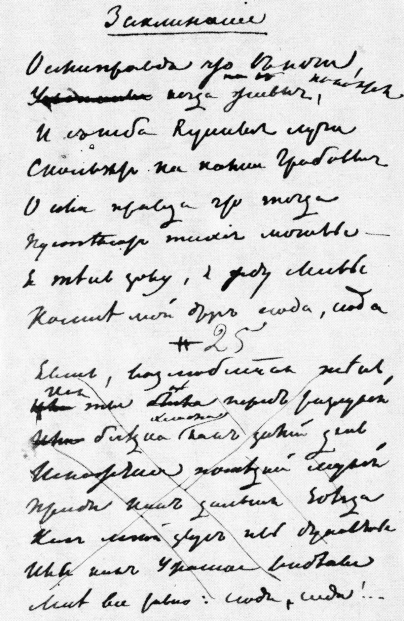 Заклинание
О если правда что въ ночи,
покоятся
когда живые,
И съ неба лунные лучи
Скользятъ на камни гробовые
О если правда что тогда
Пустѣютъ тихiя могилы —
Я тѣнь зову, я жду Леилы
Ко мнѣ мой другъ сюда, сюда
25
Явись, возлюбленная тѣнь,
ты передъ разлукой
хладна
блѣдна какъ зимнiй день
Искажена послѣдней мукой
Приди какъ дальная звѣзда
Какъ легкiй звукъ иль дуновенье
Иль какъ ужасное видѣнье
Мнѣ все равно: сюда, сюда!..